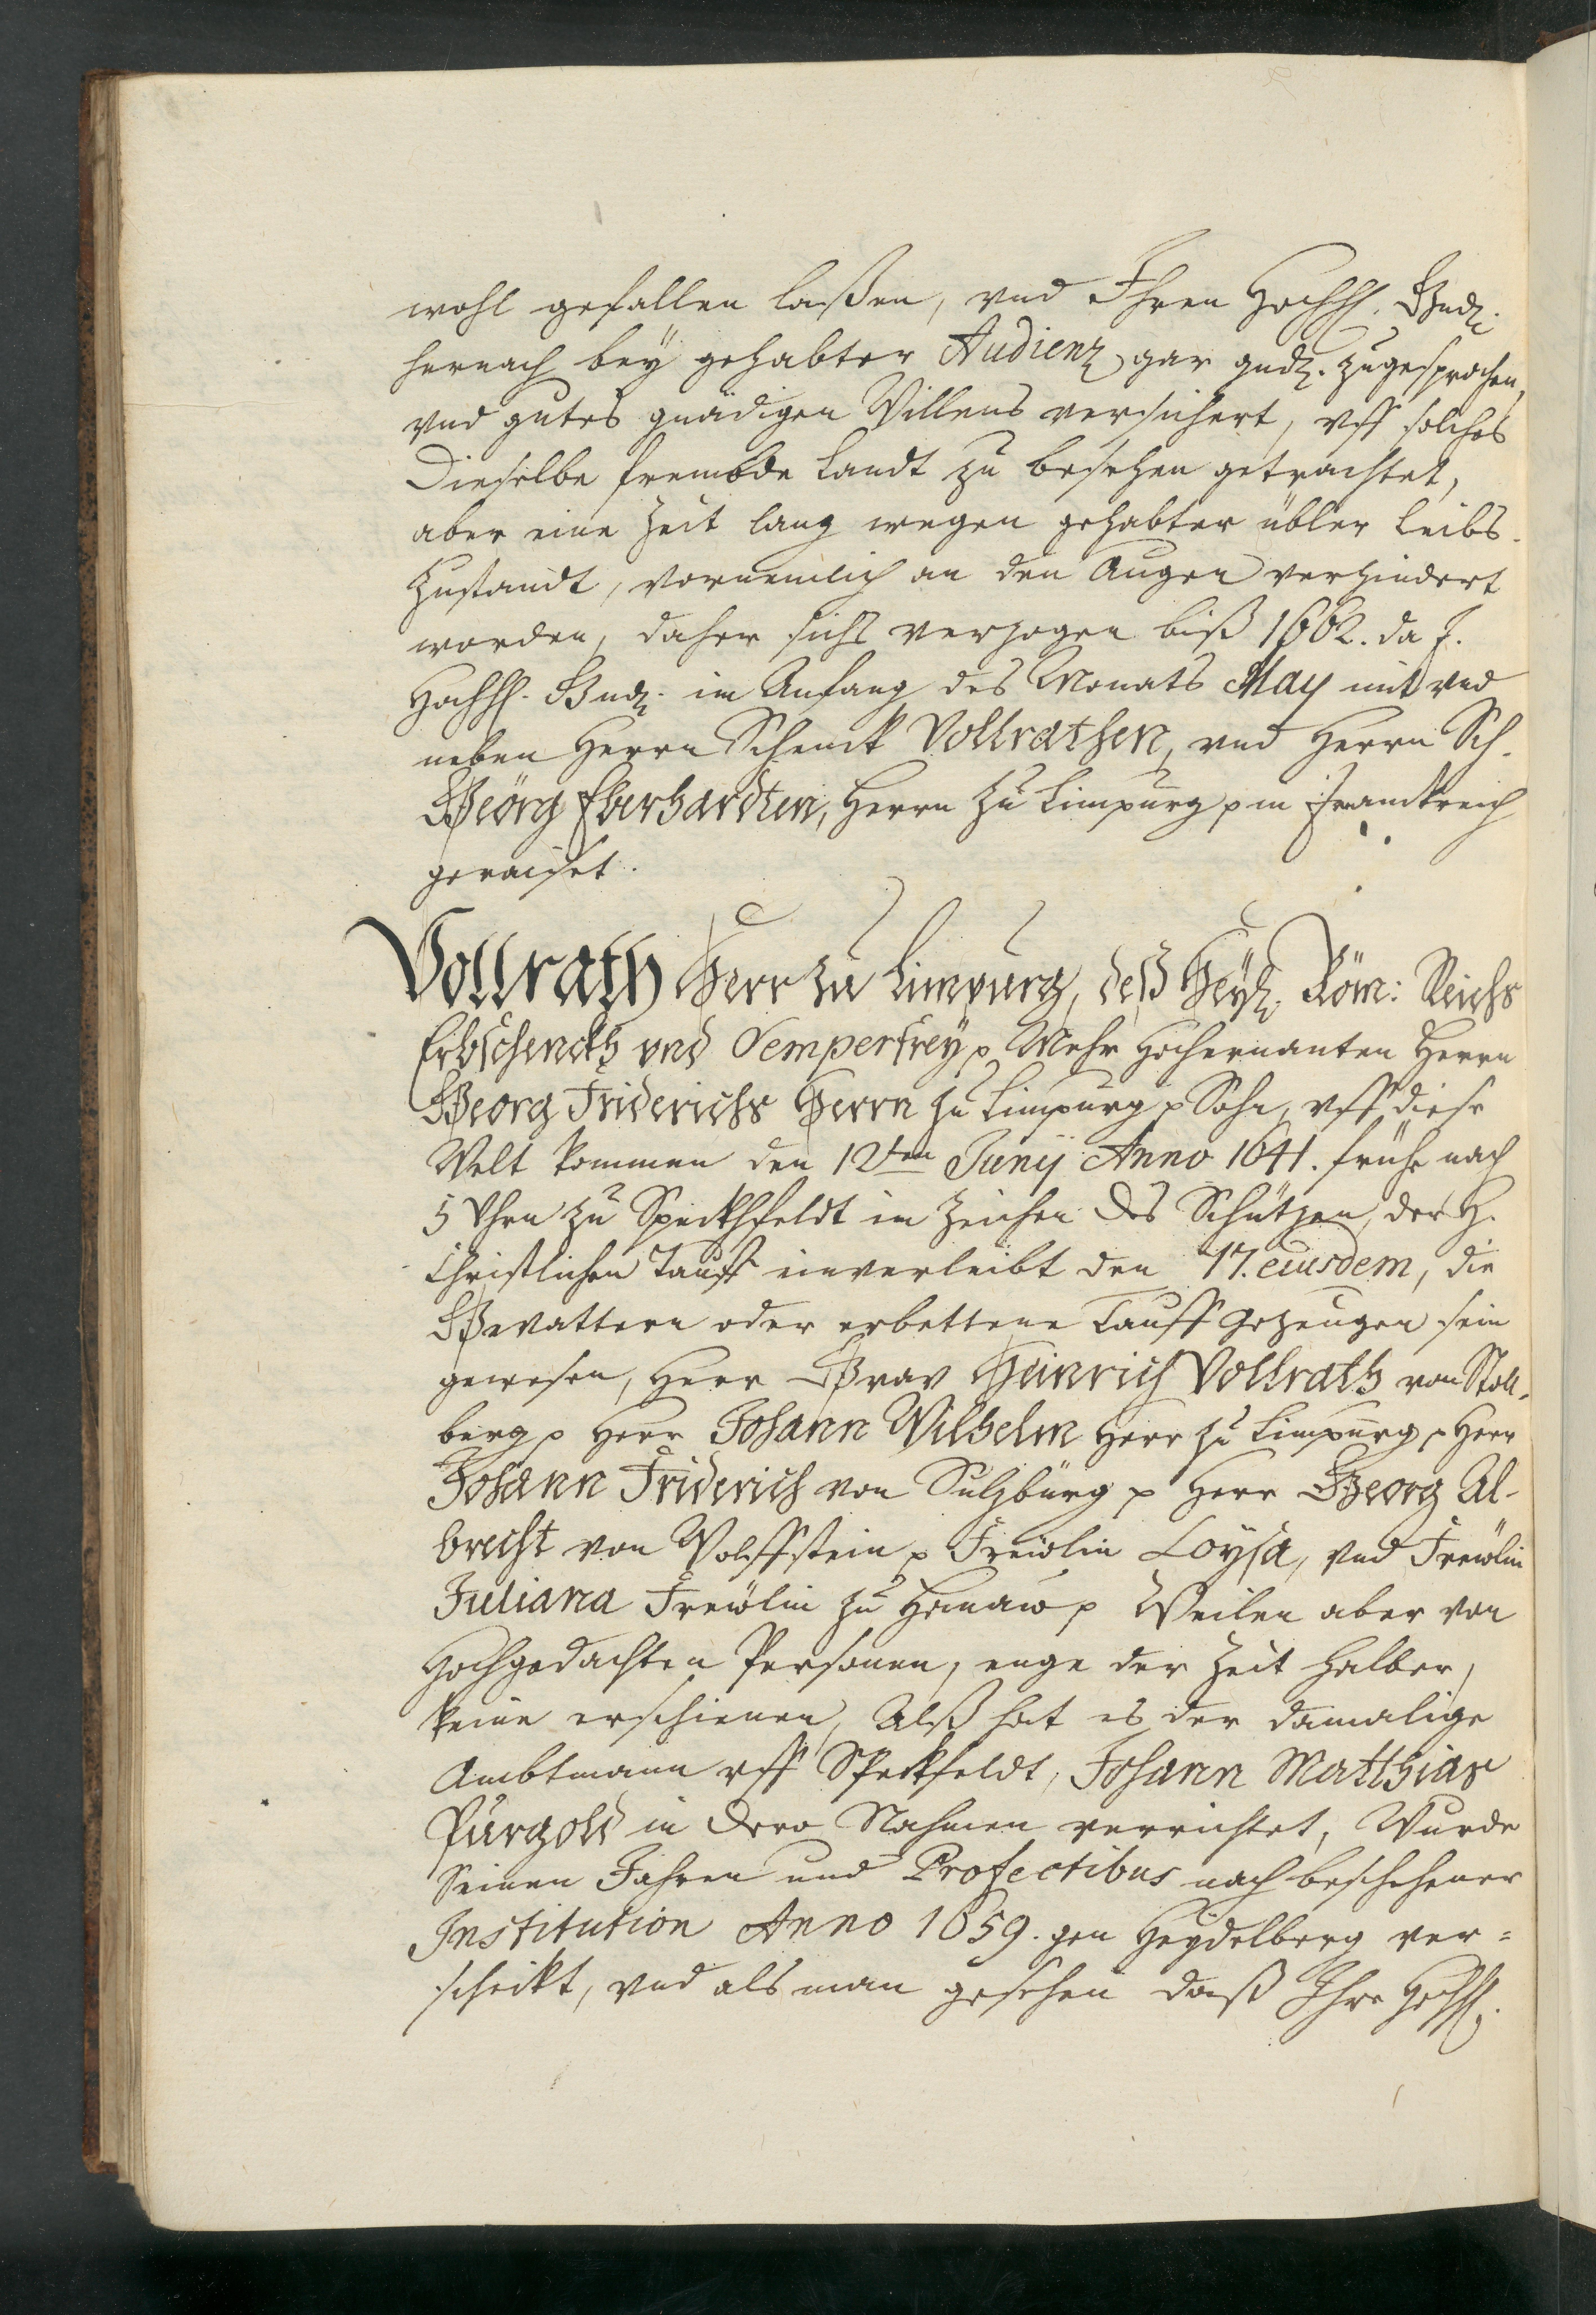 wohl gefallen laßen, vnd Ihren Hochfl. Gndl.
hernach bey gehabter Audienz gar gndl. zugesprochen,
vnd gutes gnädigen Willens versichert, vff solches
Dieselbe frembde Landt zu besehen getrachtet,
aber eine Zeit lang wegen gehabter übler Leibs-
Zustandt, vornemlich an den Augen verhindert
worden, daher sichs verzogen biß 1662. da J.
Hochfl. Gndl. im Anfang des Monats May mit vnd
neben Herrn Schenck Vollrathen, vnd Herrn Sch.
Geörg Eberhardten, Herrn zu Limpurg p in Franckreich
geraiset.
Vollrath Herr zu Limpurg, deß Heyl. Röm: Reichs
Erbschenckh vnd Semperfrey p Mehr Hochernanten Herrn
Georg Friderichs Herrn zu Limpurg p Sohn, vff diese
Welt kommen den 12ten Junij Anno 1641. frühe nach
5 Vhrn zu Speckhfeldt im Zeichen des Schützen, der H.
Christlichen Tauff einverleibt den 17. eiusdem, die
Gevattern oder erbettene Tauff Gezeugen sein
gewesen, Herr Grav Heinrich Vollrath von Stoll-
berg p Herr Johann Wilhelm Herr zu Limpurg p Herr
Johann Friderich von Sulzbürg p Herr Georg Al-
brecht von Wolffstein p Freüolin Loysa, vnd Freüolin
Juliana Freüolin zu Hanaw p Weilen aber von
Hochgedachten Personen, enge der Zeit halber,
keine erschienen, Alß hat es der damalige
Ambtmann vff Speckfeldt, Johann Matthias
Purgold in dero Nahmen verrichtet, Wurde
Seinen Jahren und Profectibus nach beschehener
Institution Anno 1659. gen Heydelberg ver=
schickt, vnd als man gesehen daß Ihre Hochfl.